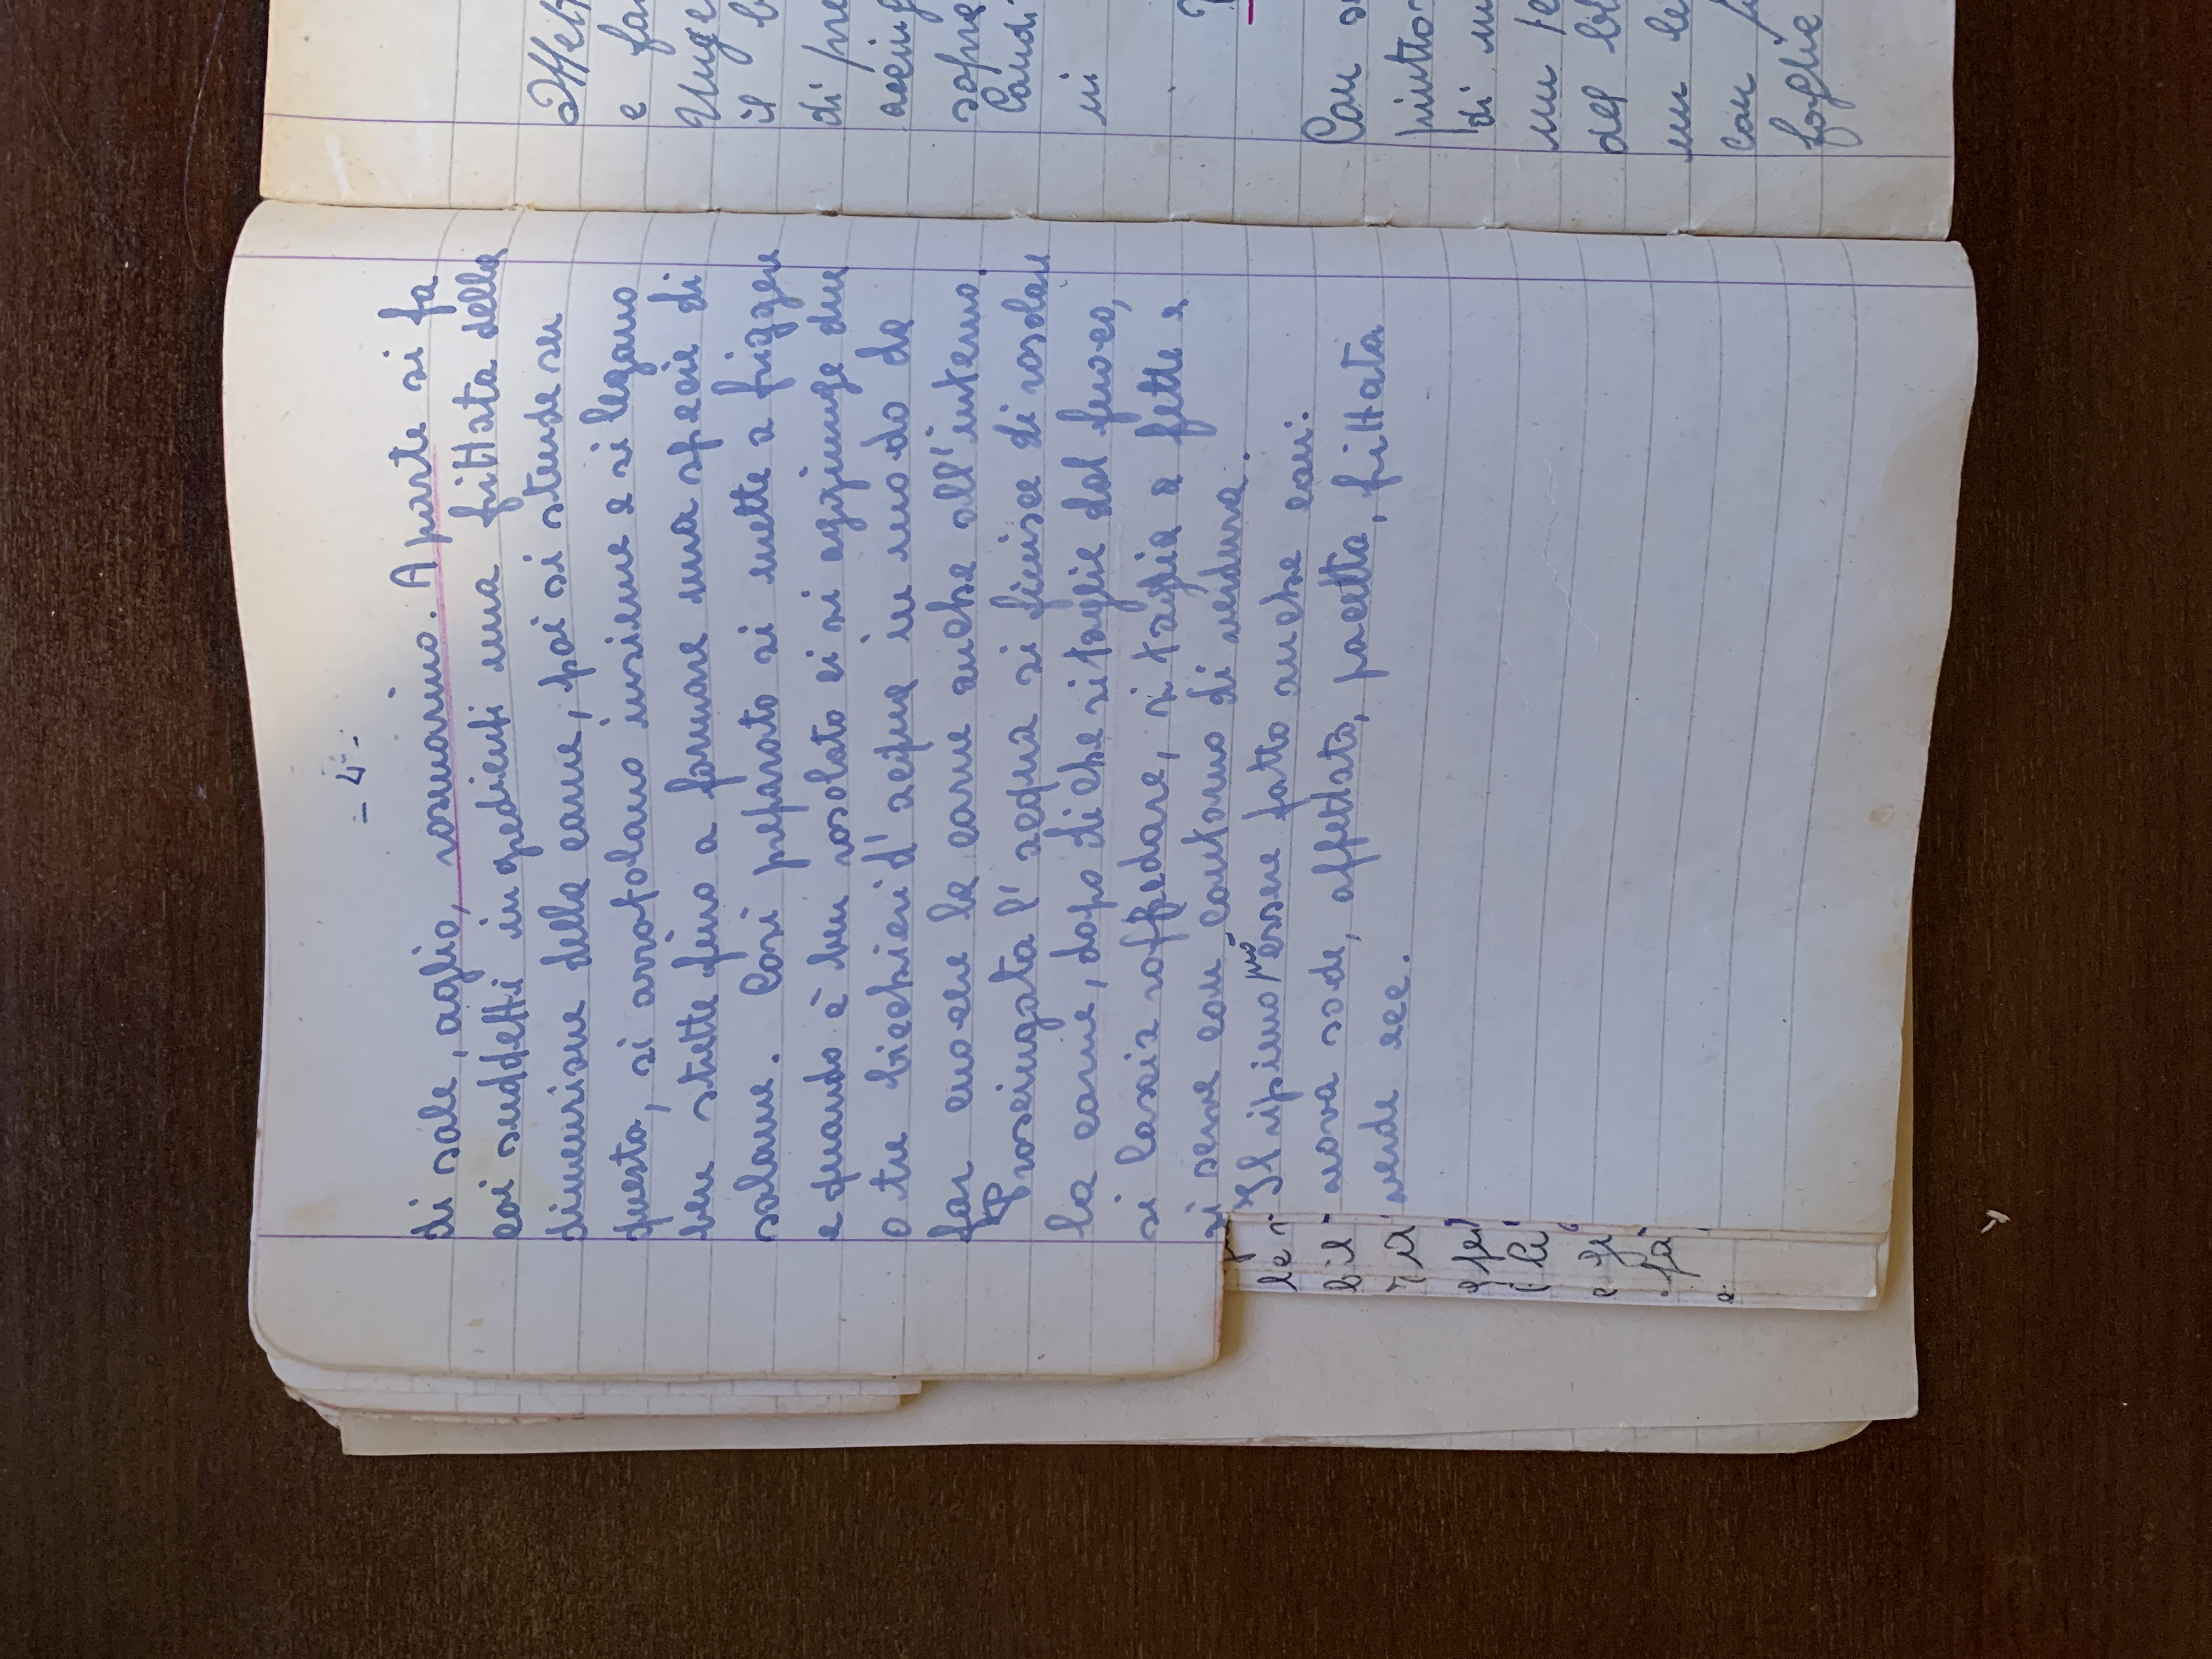 - 4 -
di sale, aglio, rosmarino. A parte si fa
coi suddetti ingredienti una frittata della
dimensione della carne, poi si stende su
questa, si arrotolano insieme e si legano
ben strette fino a formare una specie di
salame. Così preparato si mette a friggere
e quando è ben rosolato ci si aggiunge due
o tre bicchieri d'acqua in modo da
far cuocere la carne anche all'interno.
Prosciugata l'acqua si finisce di rosolare
la carne, dopo di che si toglie dal fuoco,
si lascia raffredare, si taglia a fette e
si serve con contorno di verdura.
Il ripieno può essere fatto anche con:
uova sode, affettato, pacetta, frittata
verde ecc.
e
il
di
sopra
ni
Con
di
un
del
un
con
foglie